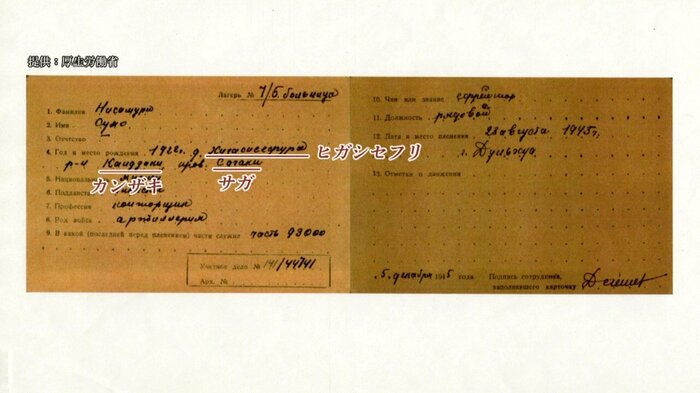 提供：厚生労働省
Лагерь № 7/6. больница
1. Фамилия Нисамура
2. Имя Сумо
3. Отчество
4. Год и место рождения 1922 г. д. Хигасисефури
ヒガシセフリ
р-н Кандзаки пров. Сагаки
カンザキ サガ
5. Национальность
6. Подданство
7. Профессия конторщик
8. Род войск артиллерия
9. В какой (последней перед пленением) части служил часть 93000
Учетное дело № 141/44741
Арх. №
10. Чин или звание ефрейтор
11. Должность рядовой
12. Дата и место пленения 23 августа 1945 г.
г. Дуньхуа
13. Отметки о движении
"5" декабря 1945 года Подпись сотрудника,
заполнявшего карточку